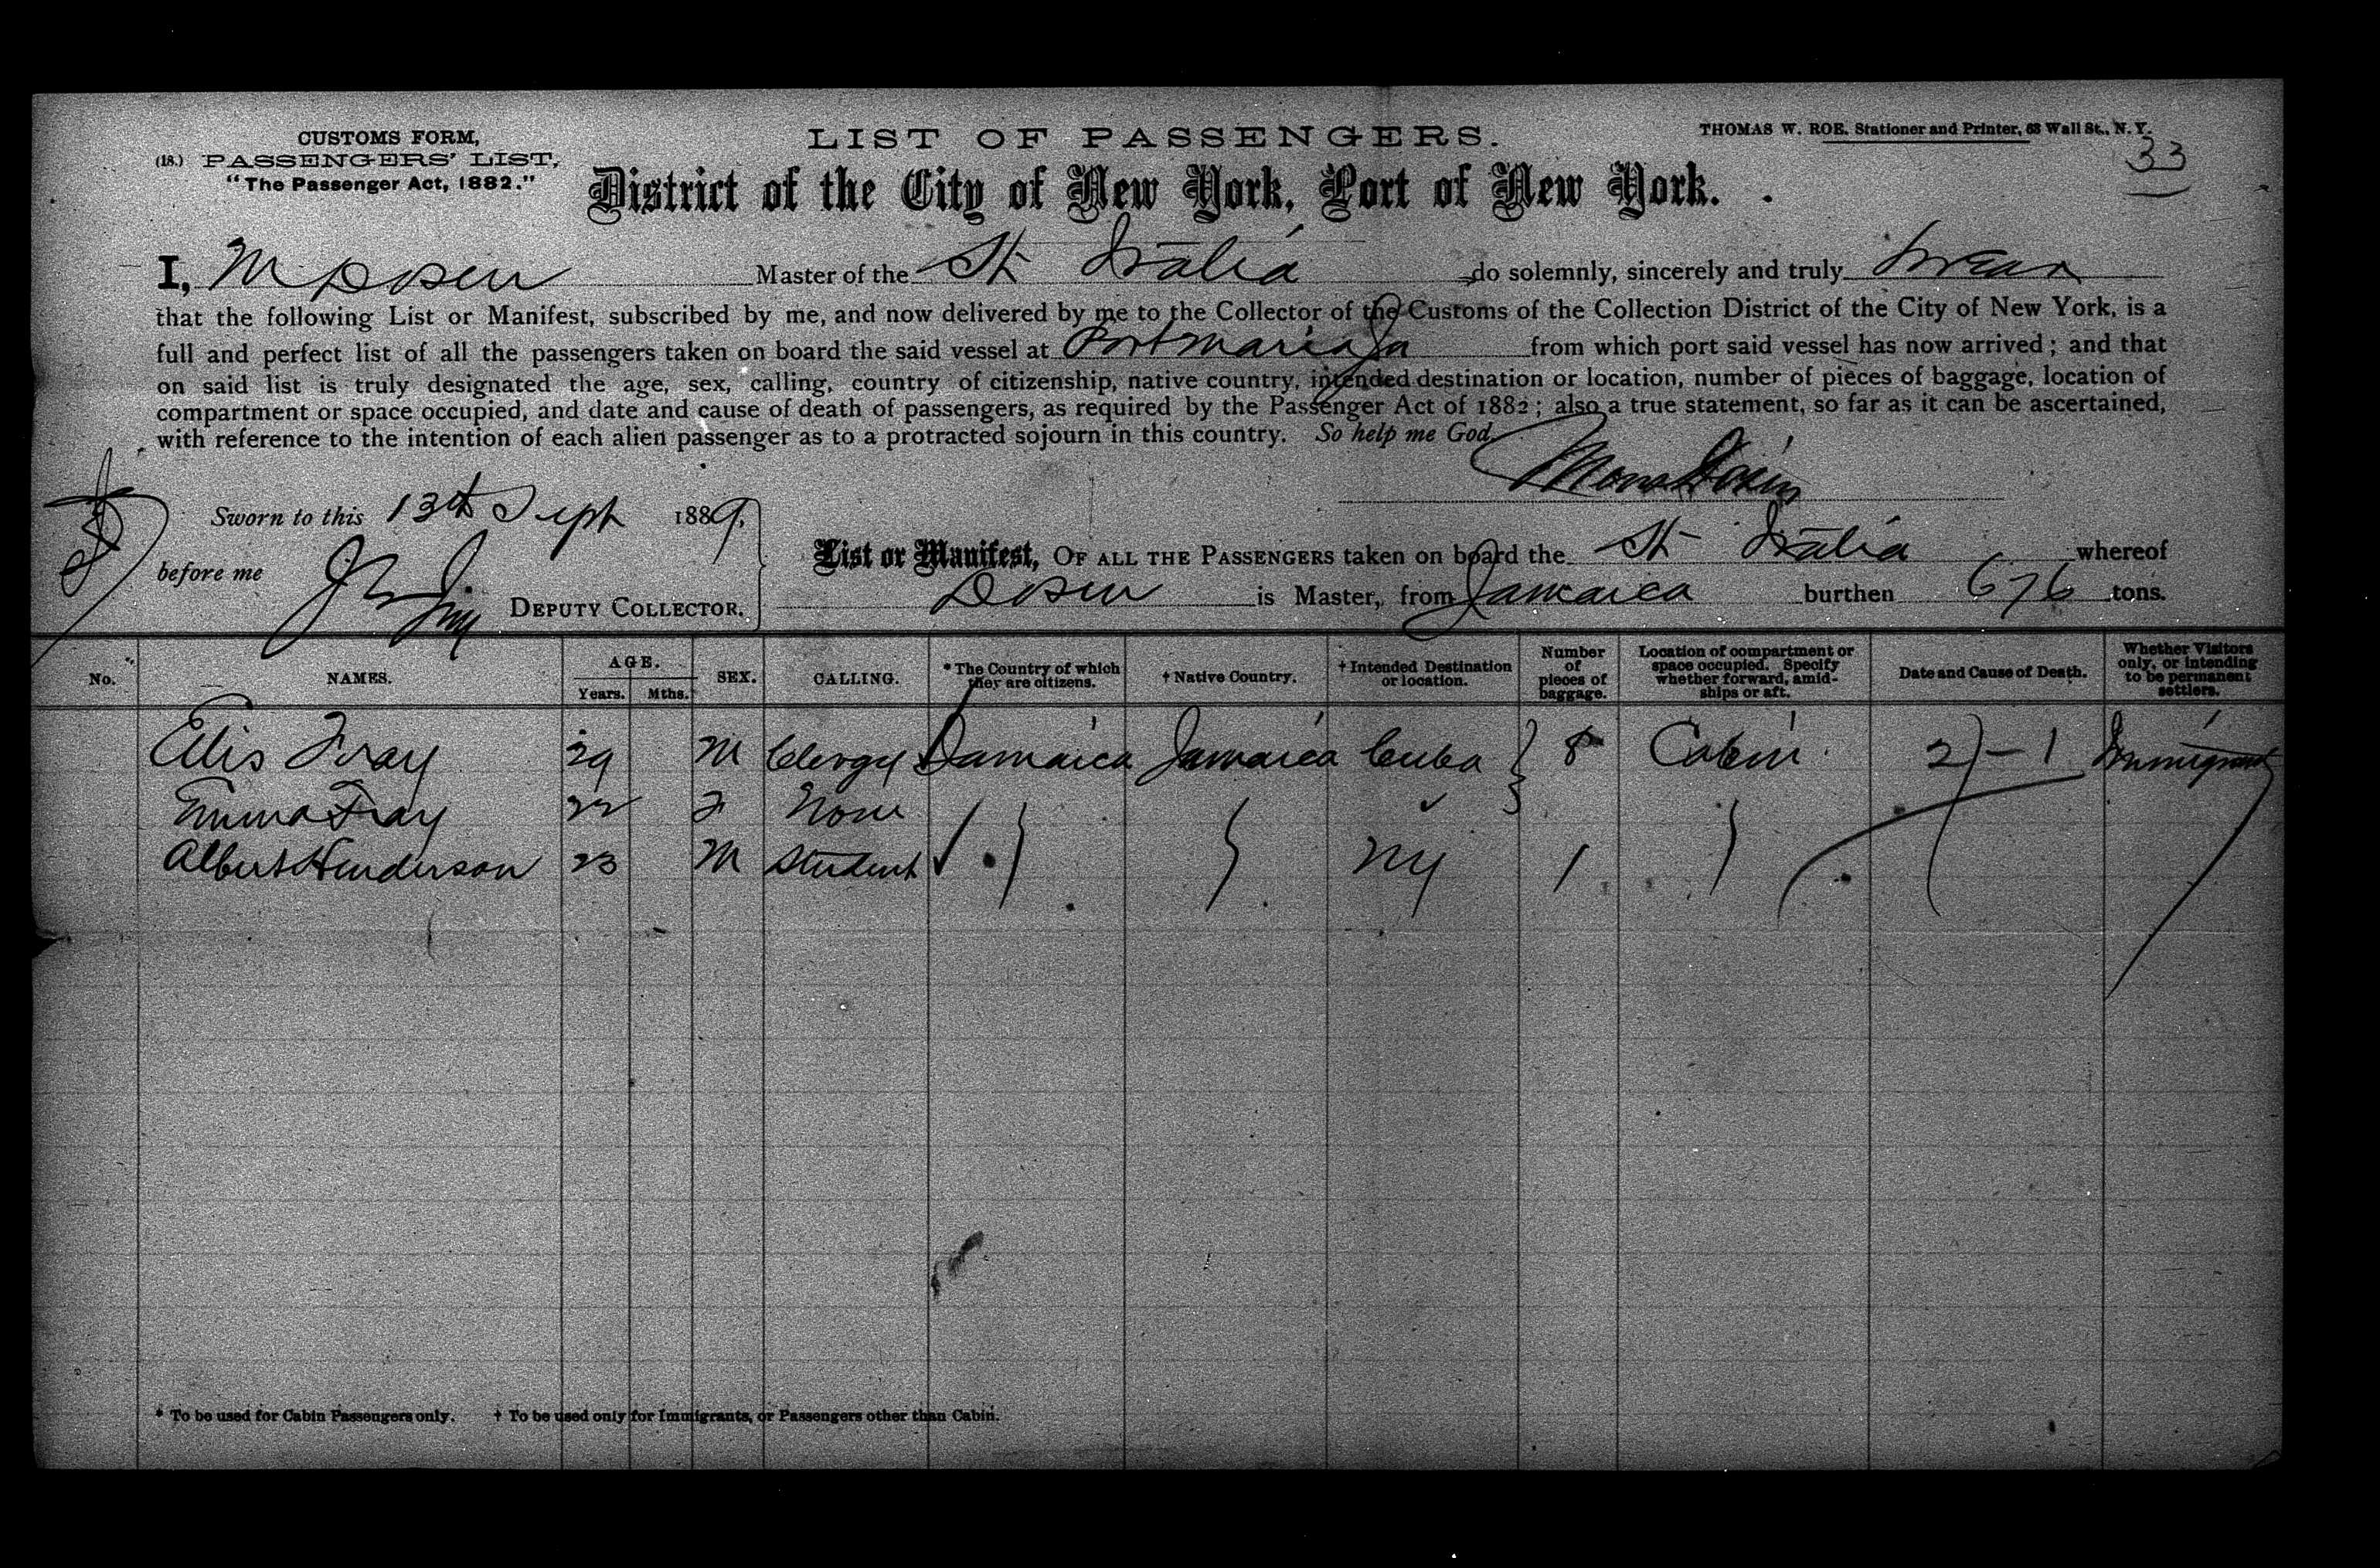 CUSTOMS FORM,
(18.) PASSENGERS' LIST,
"The Passenger Act, 1882."
LIST OF PASSENGERS.
THOMAS W. ROE, Stationer and Printer, 63 Wall St., N. Y.
33
District of the City of New York, Port of New York.
I, M Dosen Master of the St Italia do solemnly, sincerely and truly swear
that the following List or Manifest, subscribed by me, and now delivered by me to the Collector of the Customs of the Collection District of the City of New York, is a
full and perfect list of all the passengers taken on board the said vessel at Port Maria Ja from which port said vessel has now arrived; and that
on said list is truly designated the age, sex, calling, country of citizenship, native country, intended destination or location, number of pieces of baggage, location of
compartment or space occupied, and date and cause of death of passengers, as required by the Passenger Act of 1882; also a true statement, so far as it can be ascertained,
with reference to the intention of each alien passenger as to a protracted sojourn in this country. So help me God.
Sworn to this 13th Sept 1889,
before me
DEPUTY COLLECTOR.
List or Manifest, OF ALL THE PASSENGERS taken on board the St Italia whereof
Dosen is Master, from Jamaica burthen 676 tons.
No. NAMES. AGE. Years. Mths. SEX. CALLING. * The Country of which they are citizens. † Native Country. † Intended Destination or location. Number of pieces of baggage. Location of compartment or space occupied. Specify whether forward, amidships or aft. Date and Cause of Death. Whether Visitors only, or intending to be permanent settlers.
Elis Fray 29 M Clergy Jamaica Jamaica Cuba 8 Cabin 2) - 1 Immigrant
Emma Fray 22 F None
Albert Henderson 23 M Student NY 1
* To be used for Cabin Passengers only. † To be used only for Immigrants, or Passengers other than Cabin.